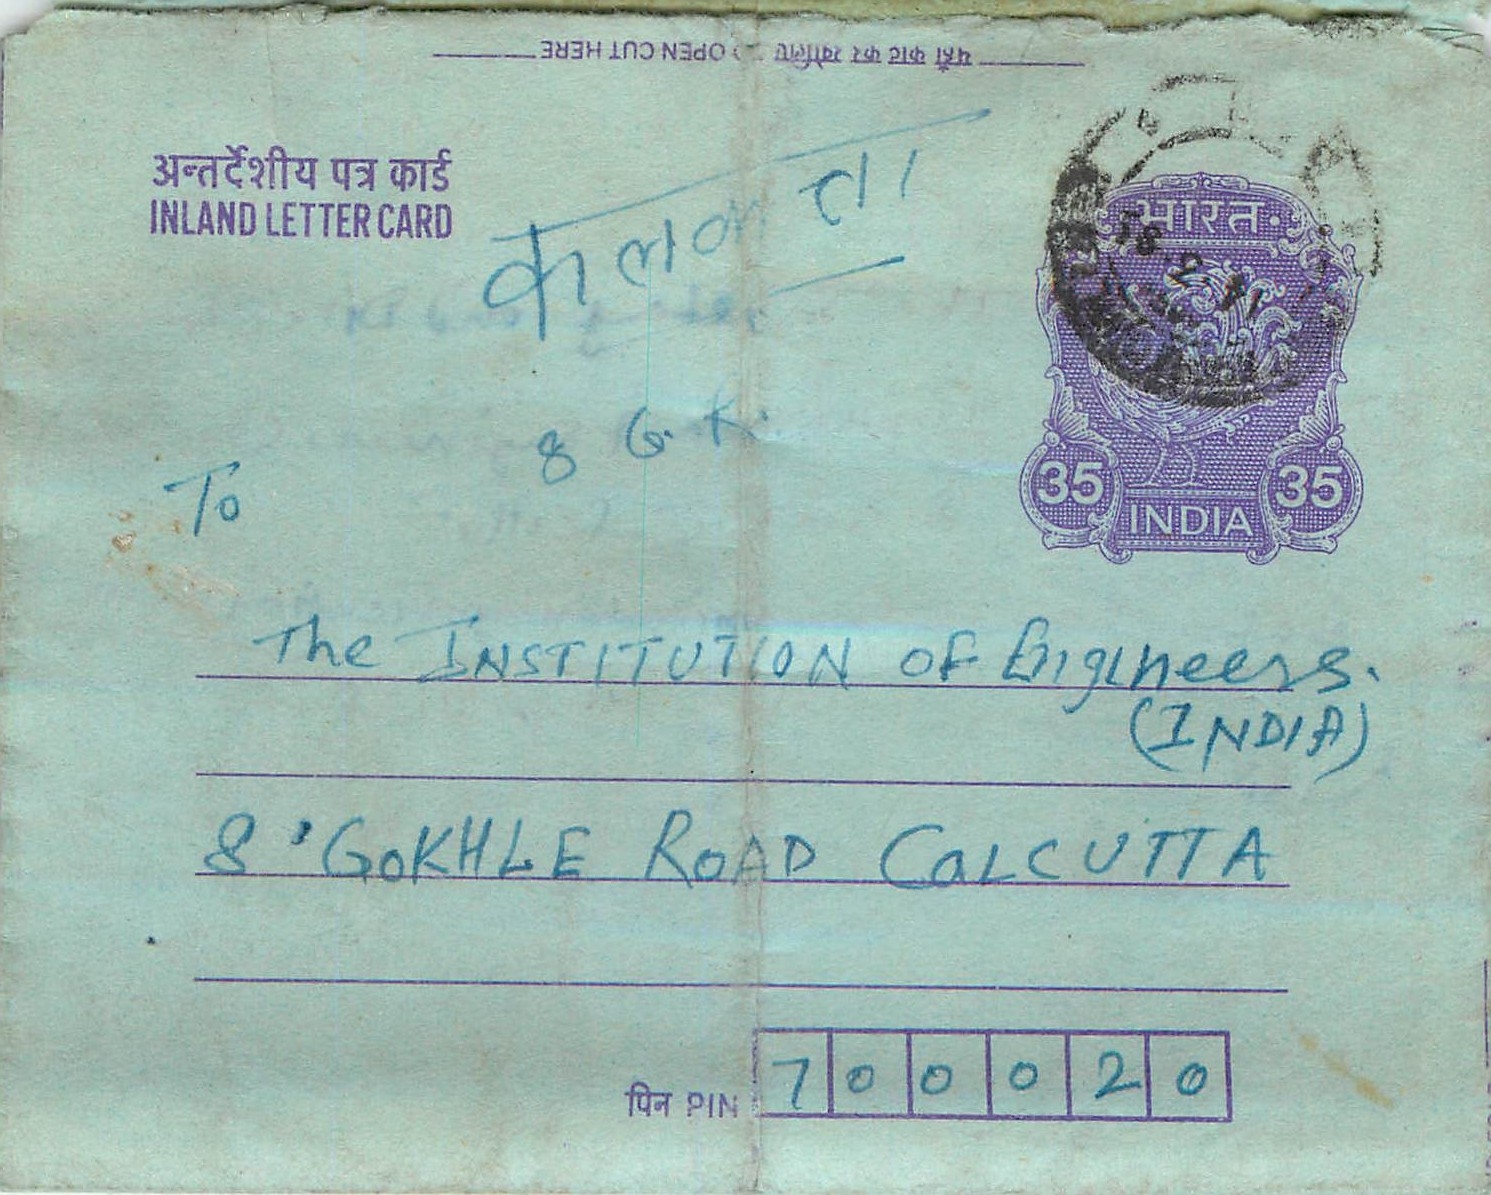 यहाँ काट कर खोलिए TO OPEN CUT HERE
अन्तर्देशीय पत्र कार्ड
INLAND LETTER CARD
कलकत्ता
भारत
35 35
INDIA
8 G. K.
To
The INSTITUTION OF Engineers.
(INDIA)
8 'GOKHLE ROAD CALCUTTA
पिन PIN 700020